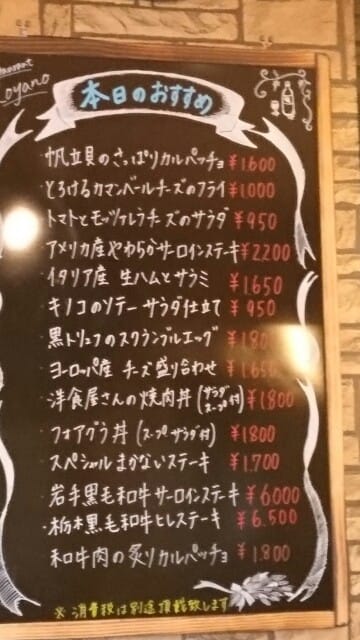 oyano
本日のおすすめ
・帆立貝のさっぱりカルパッチョ ¥1.600
・とろけるカマンベールチーズのフライ ¥1.000
・トマトとモッツァレラチーズのサラダ ¥950
・アメリカ産やわらかサーロインステーキ ¥2.200
・イタリア産 生ハムとサラミ ¥1.650
・キノコのソテー サラダ仕立て ¥950
・黒トリュフのスクランブルエッグ ¥1.80
・ヨーロッパ産 チーズ盛り合わせ ¥1.650
・洋食屋さんの焼肉丼(サラダ スープ付) ¥1800
・フォアグラ丼(スープサラダ付) ¥1800
・スペシャルまかないステーキ ¥1.700
・岩手黒毛和牛サーロインステーキ ¥6000
・栃木黒毛和牛ヒレステーキ ¥6.500
・和牛肉の炙りカルパッチョ ¥1.800
※消費税は別途頂戴致します